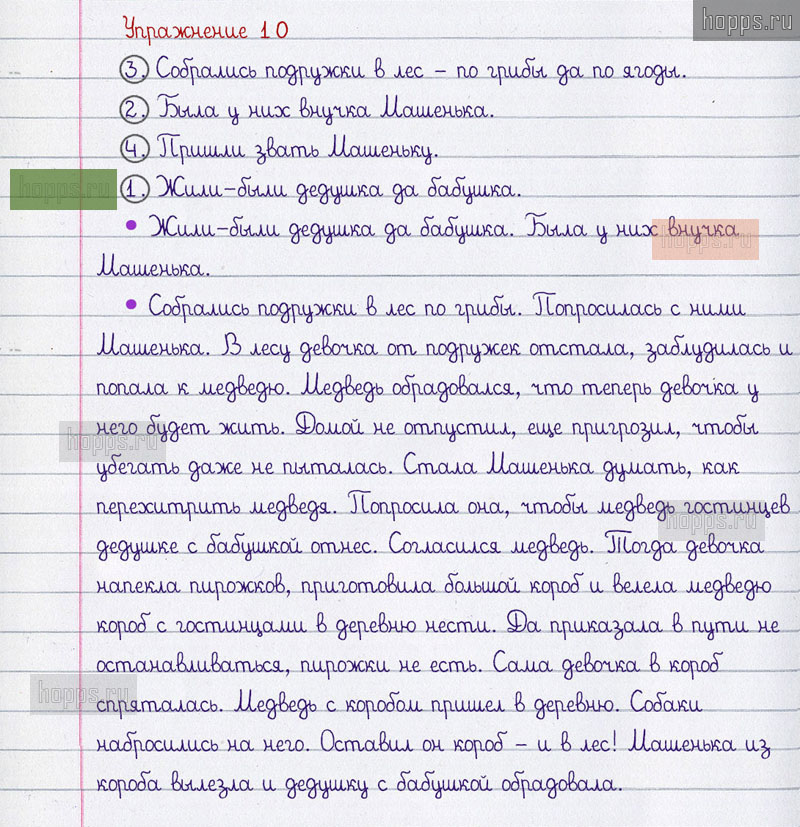 hopps.ru
Упражнение 10
3. Собрались подружки в лес – по грибы да по ягоды.
2. Была у них внучка Машенька.
4. Пришли звать Машеньку.
hopps.ru
1. Жили-были дедушка да бабушка.
• Жили-были дедушка да бабушка. Была у них внучка
hopps.ru
Машенька.
• Собрались подружки в лес по грибы. Попросилась с ними
Машенька. В лесу девочка от подружек отстала, заблудилась и
попала к медведю. Медведь обрадовался, что теперь девочка у
него будет жить. Домой не отпустил, еще пригрозил, чтобы
hopps.ru
убегать даже не пыталась. Стала Машенька думать, как
перехитрить медведя. Попросила она, чтобы медведь гостинцев
hopps.ru
дедушке с бабушкой отнес. Согласился медведь. Тогда девочка
напекла пирожков, приготовила большой короб и велела медведю
короб с гостинцами в деревню нести. Да приказала в пути не
останавливаться, пирожки не есть. Сама девочка в короб
hopps.ru
спряталась. Медведь с коробом пришел в деревню. Собаки
набросились на него. Оставил он короб – и в лес! Машенька из
короба вылезла и дедушку с бабушкой обрадовала.